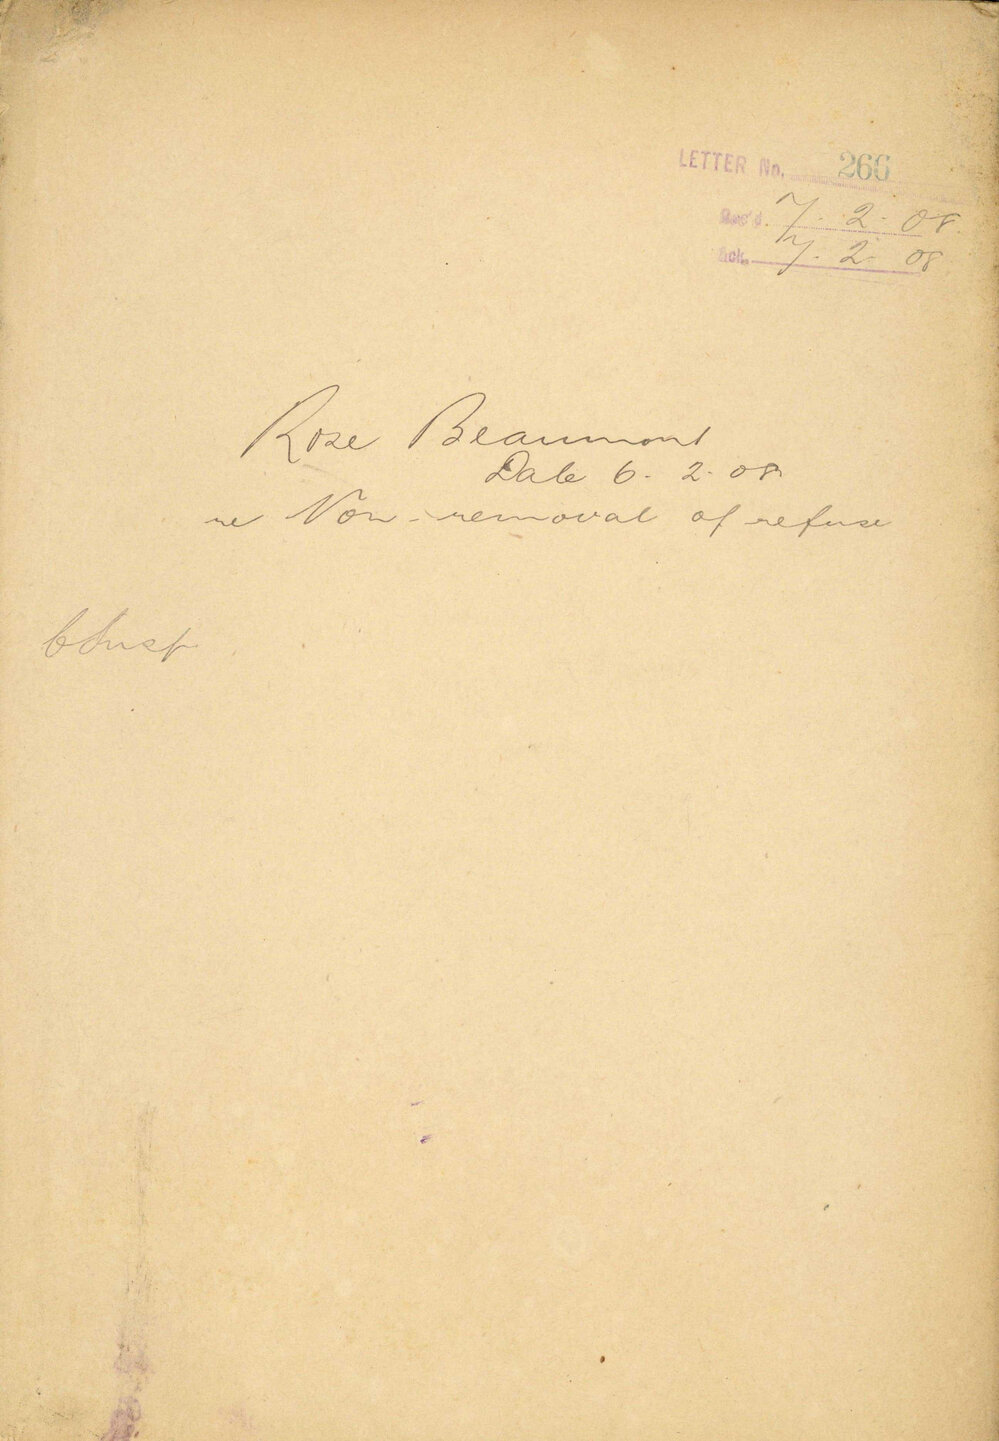 LETTER No. 266
Rec'd. 7. 2. 08.
Ack. 7. 2. 08
Rose Beaumont
Date 6. 2. 08
re Non-removal of refuse
C Insp